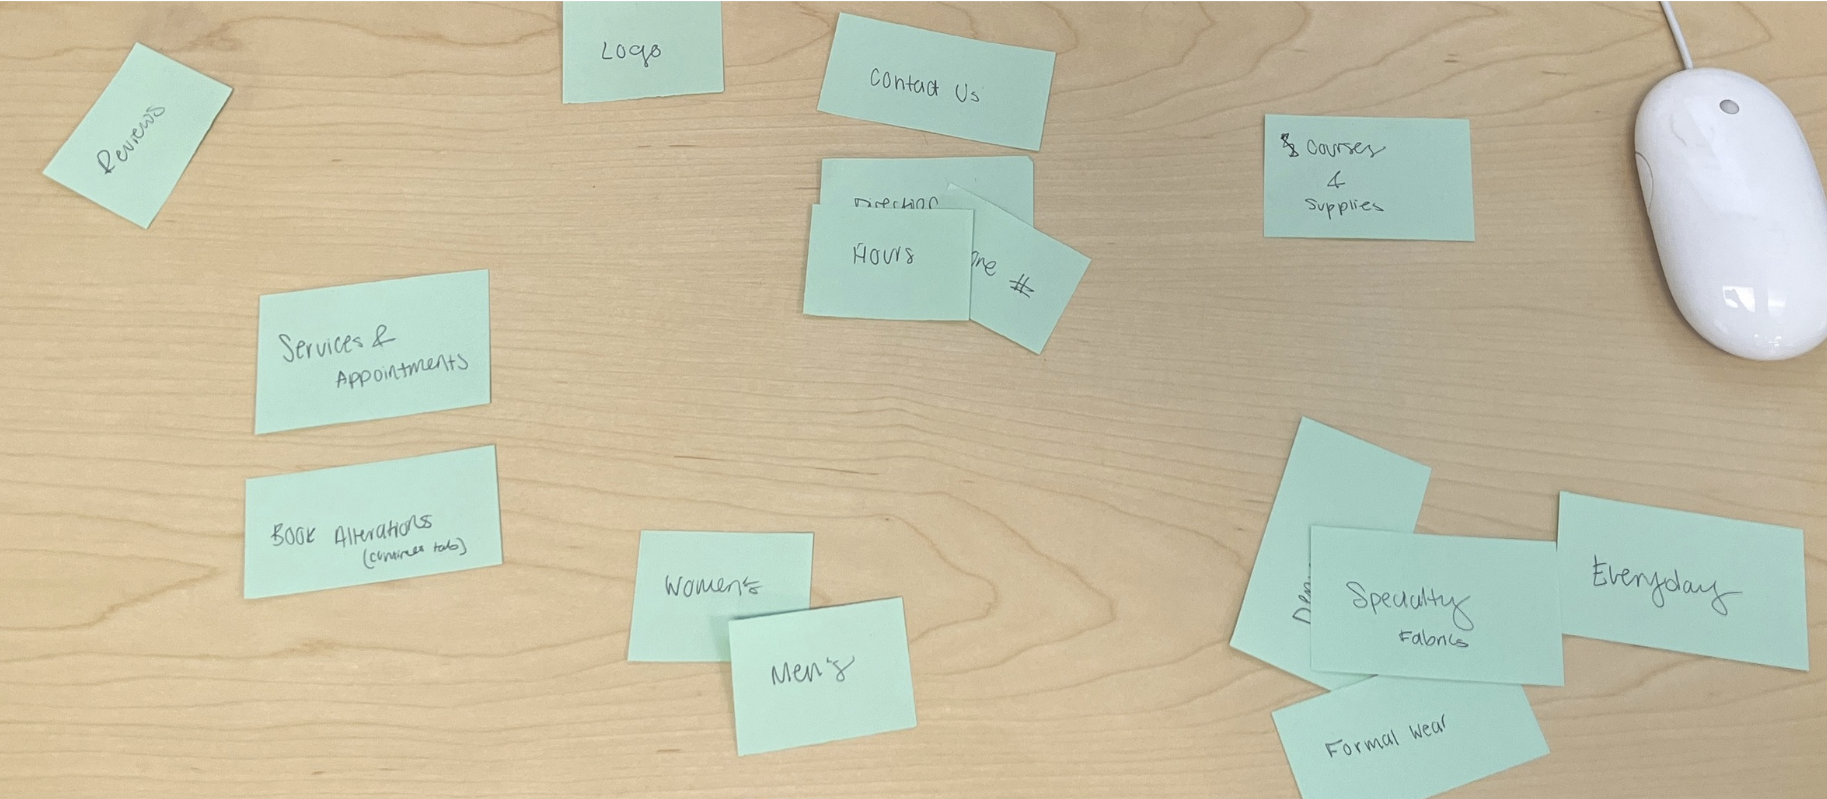 Reviews
Logo
Contact Us
Direction
Hours
one #
Courses
&
Supplies
Services &
Appointments
Book Alterations
Women's
Men's
Den
Specialty
Fabrics
Everyday
Formal Wear